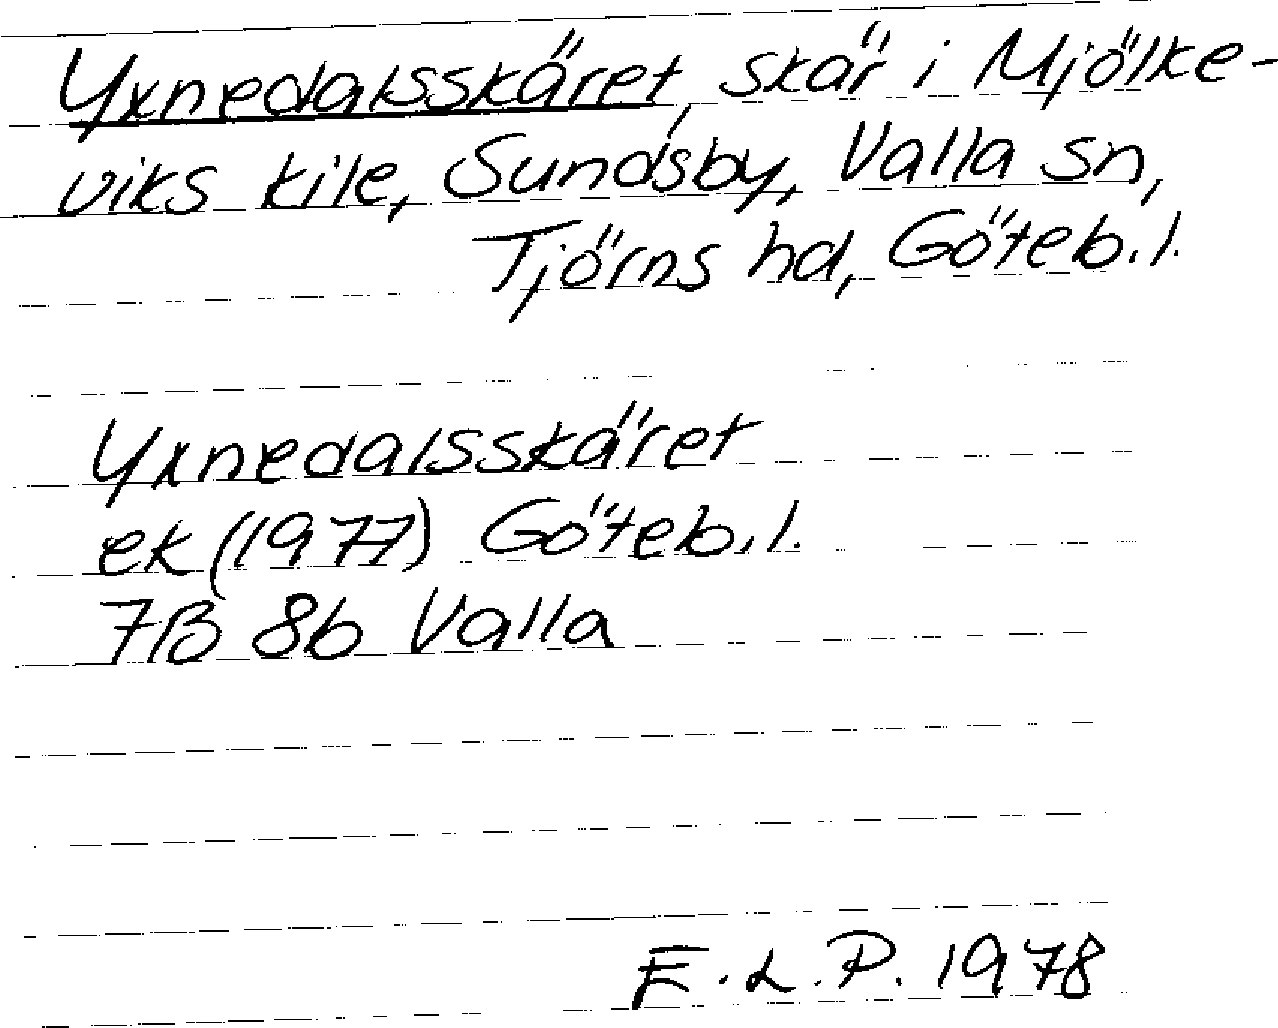 Yxnedalsskäret, skär i Mjölke-
viks kile, Sundsby, Valla sn,
Tjörns hd, Göteb.l.
Yxnedalsskäret
ek (1977) Göteb.l.
7B 8b Valla
E.L.P. 1978